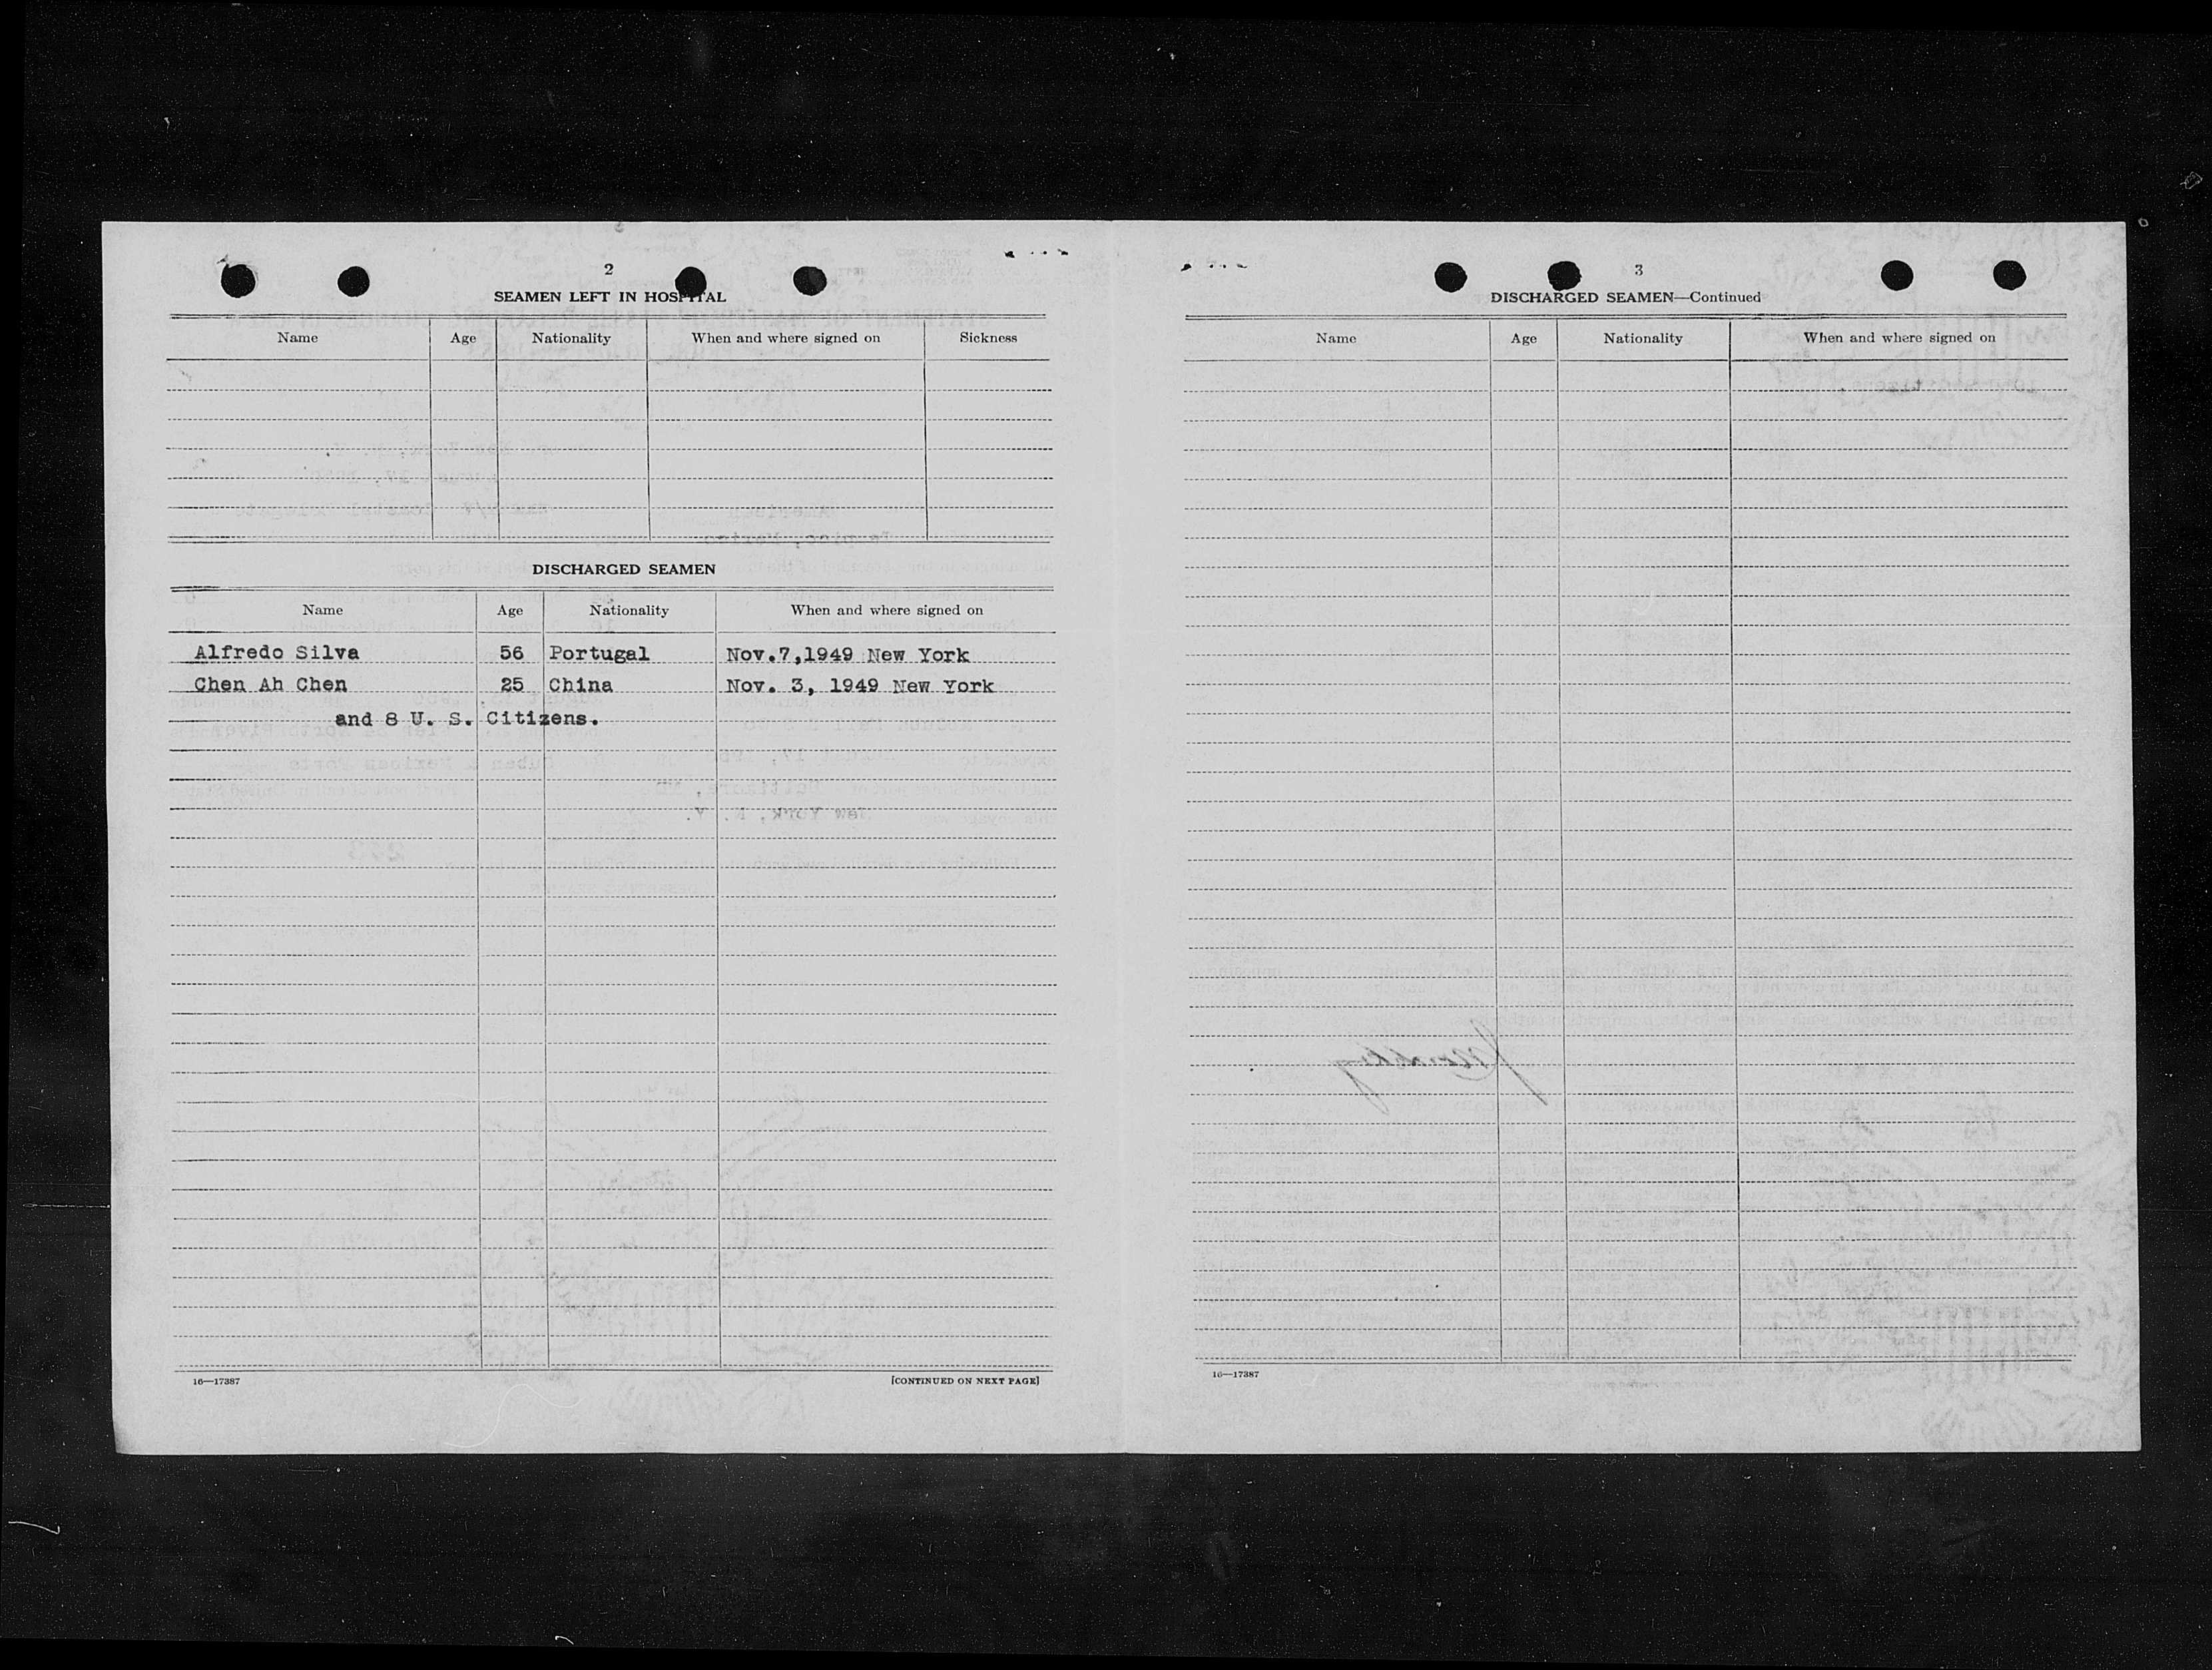 2
SEAMEN LEFT IN HOSPITAL
Name Age Nationality When and where signed on Sickness
DISCHARGED SEAMEN
Name Age Nationality When and where signed on
Alfredo Silva 56 Portugal Nov.7,1949 New York
Chen Ah Chen 25 China Nov. 3, 1949 New York
and 8 U. S. Citizens.
16—17387 [CONTINUED ON NEXT PAGE]
3
DISCHARGED SEAMEN—Continued
Name Age Nationality When and where signed on
16—17387